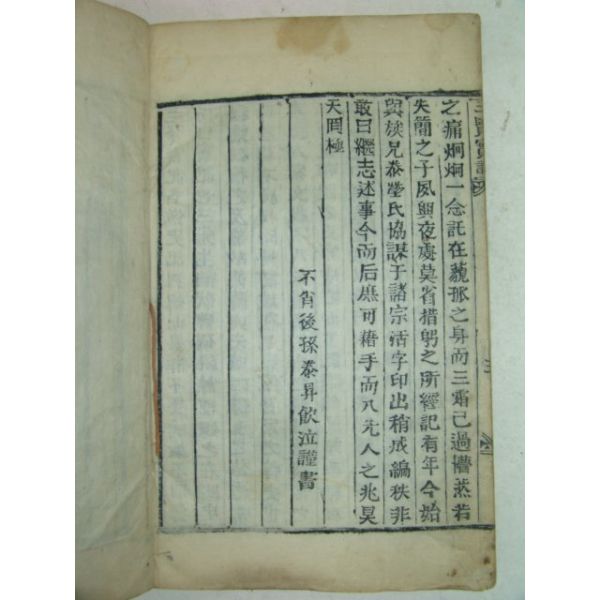 三賢實記
之痛炯炯一念託在藐孤之身而三霜已過懵蒸若
失簡之子夙興夜處莫省措躬之所經記有年今始
與族兄泰瑩氏協謀于諸宗活字印出稍成編秩非
敢曰繼志述事今而后庶可藉手而入先人之兆昊
天罔極
不肖後孫泰昇飮泣謹書